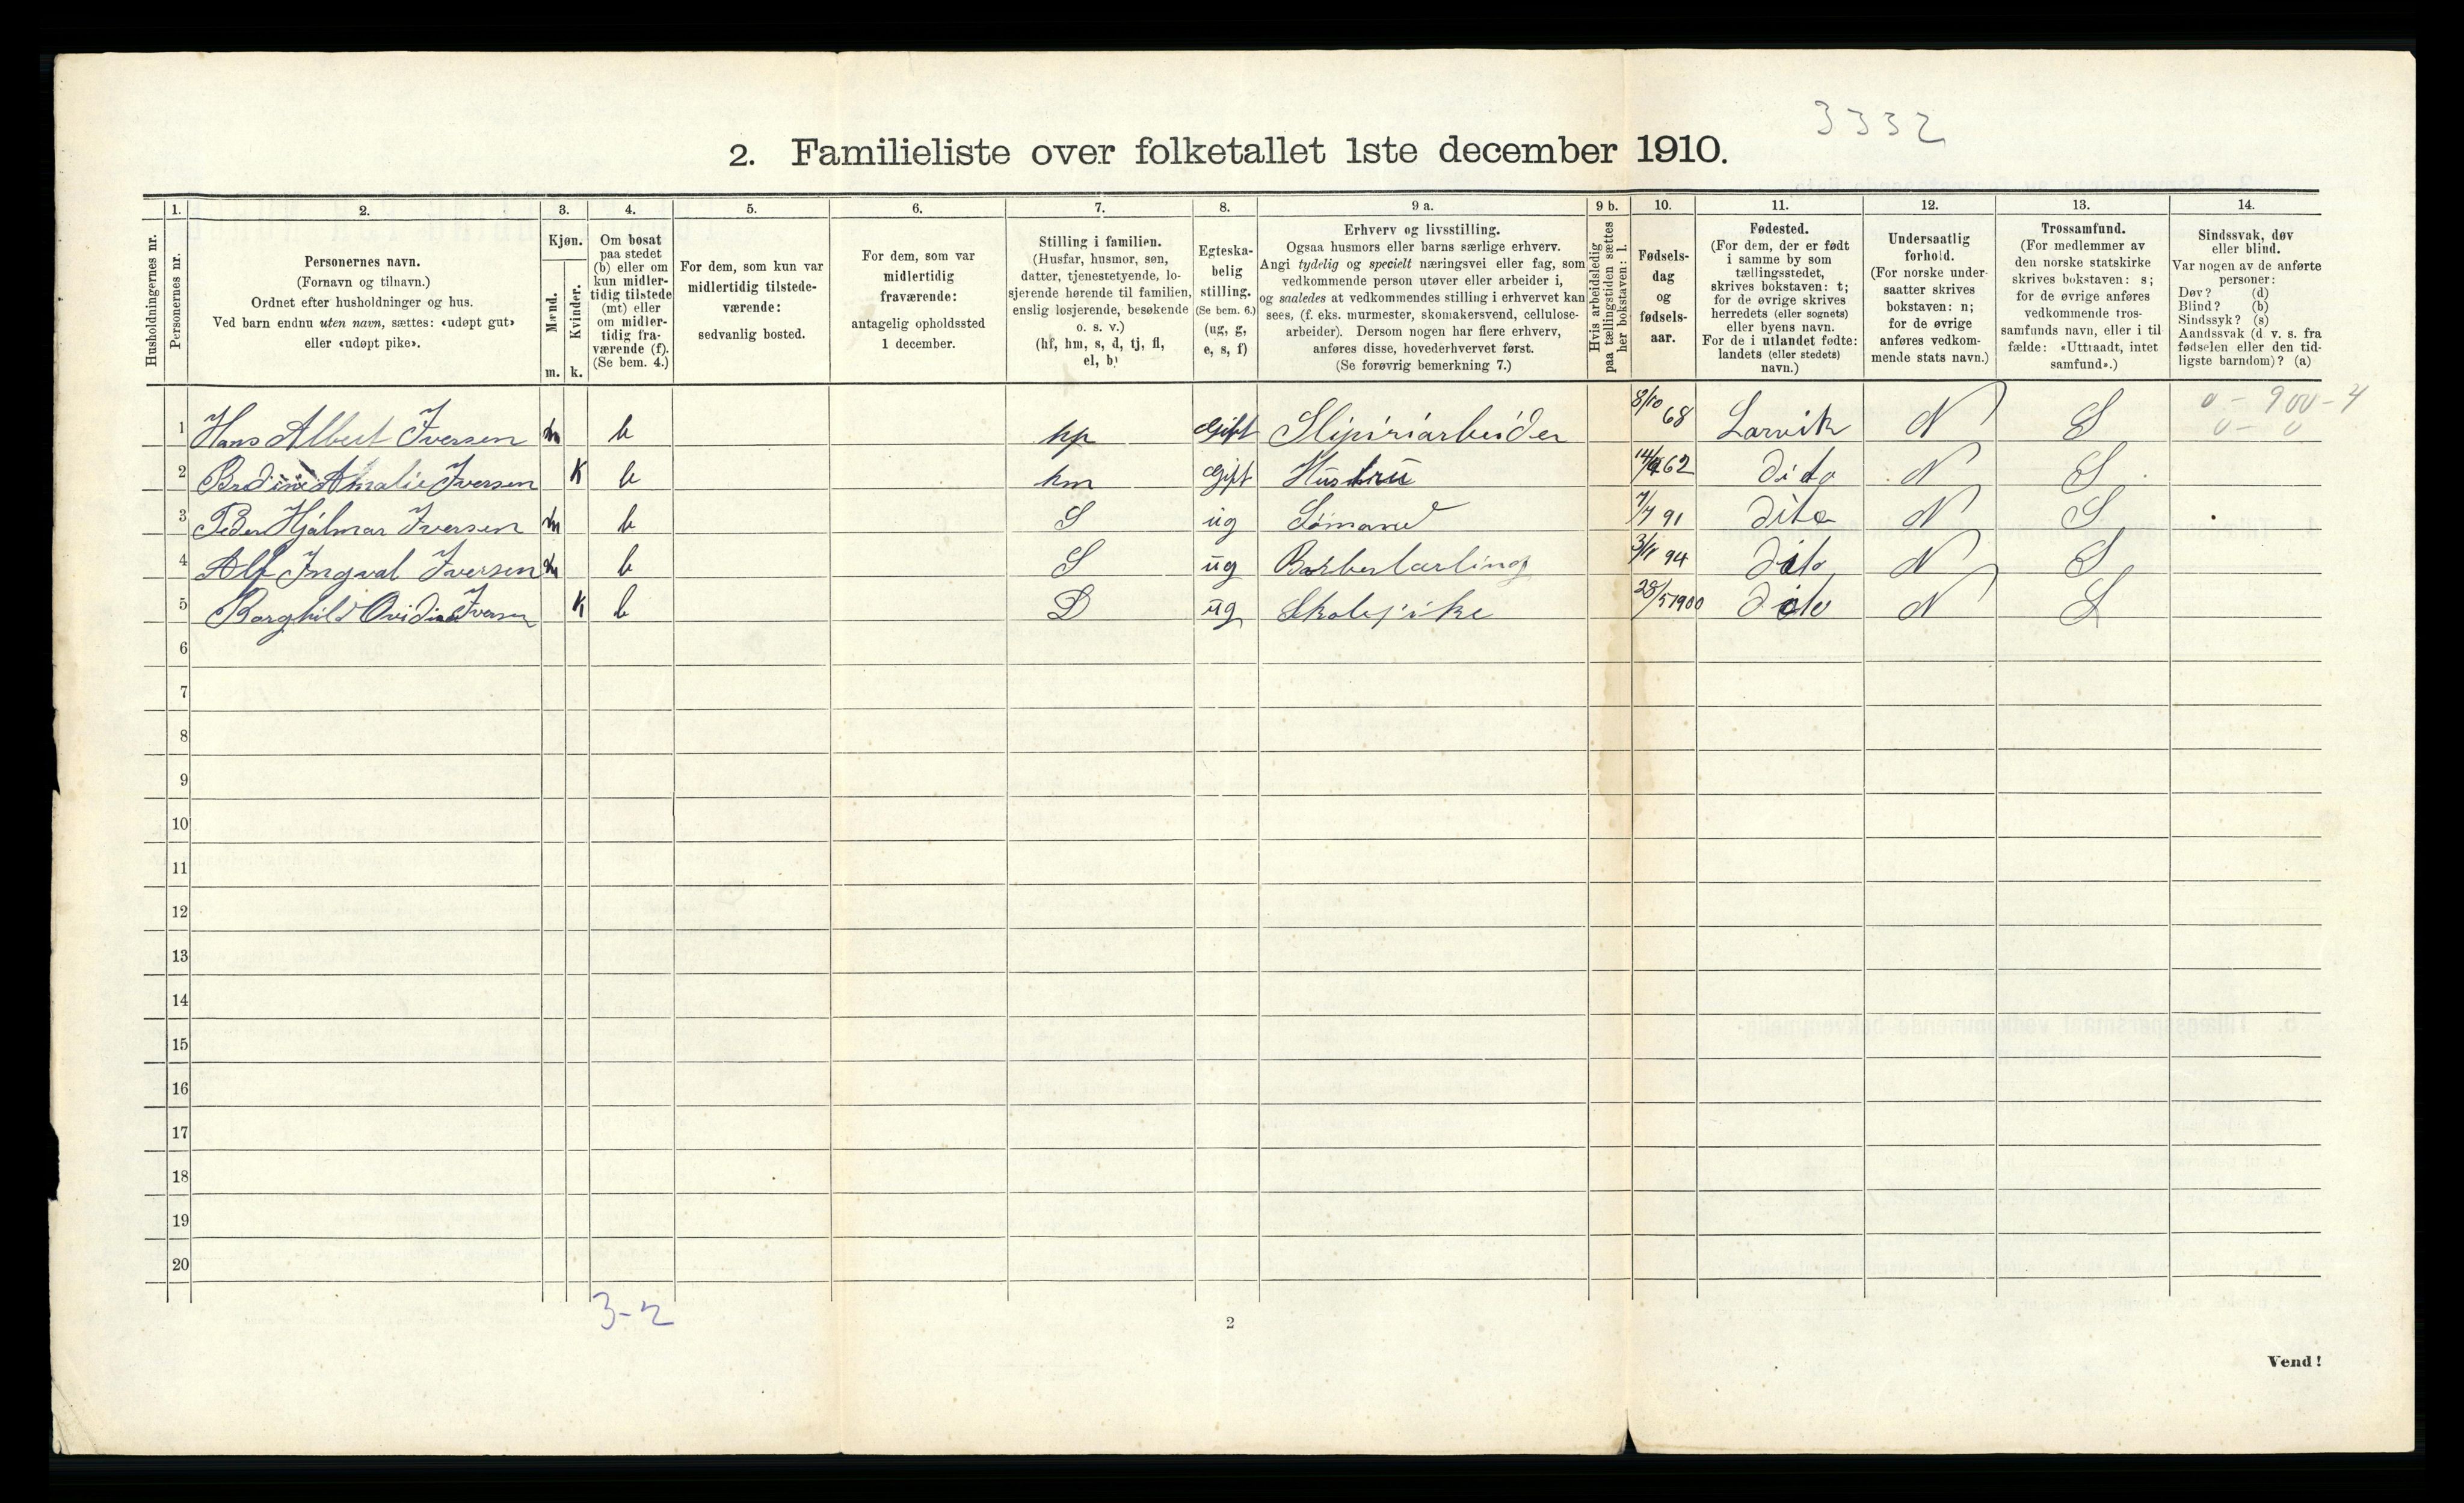 3332
2. Familieliste over folketallet 1ste december 1910.
Husholdningernes nr.
1.
Personernes nr.
2.
Personernes navn.
(Fornavn og tilnavn.)
Ordnet efter husholdninger og hus.
Ved barn endnu uten navn, sættes: «udøpt gut»
eller «udøpt pike».
3.
Kjøn.
Mænd.
m.
Kvinder.
k.
4.
Om bosat
paa stedet
(b) eller om
kun midler-
tidig tilstede
(mt) eller
om midler-
tidig fra-
værende (f).
(Se bem. 4.)
5.
For dem, som kun var
midlertidig tilstede-
værende:
sedvanlig bosted.
6.
For dem, som var
midlertidig
fraværende:
antagelig opholdssted
1 december.
7.
Stilling i familien.
(Husfar, husmor, søn,
datter, tjenestetyende, lo-
sjerende hørende til familien,
enslig losjerende, besøkende
o. s. v.)
(hf, hm, s, d, tj, fl,
el, b)
8.
Egteska-
belig
stilling.
(Se bem. 6.)
(ug, g,
e, s, f)
9 a.
Erhverv og livsstilling.
Ogsaa husmors eller barns særlige erhverv.
Angi tydelig og specielt næringsvei eller fag, som
vedkommende person utøver eller arbeider i,
og saaledes at vedkommendes stilling i erhvervet kan
sees, (f. eks. murmester, skomakersvend, cellulose-
arbeider). Dersom nogen har flere erhverv,
anføres disse, hovederhvervet først.
(Se forøvrig bemerkning 7.)
9 b.
Hvis arbeidsledig
paa tællingstiden sættes
her bokstaven: l.
10.
Fødsels-
dag
og
fødsels-
aar.
11.
Fødested.
(For dem, der er født
i samme by som
tællingsstedet,
skrives bokstaven: t;
for de øvrige skrives
herredets (eller sognets)
eller byens navn.
For de i utlandet fødte:
landets (eller stedets)
navn.)
12.
Undersaatlig
forhold.
(For norske under-
saatter skrives
bokstaven: n;
for de øvrige
anføres vedkom-
mende stats navn.)
13.
Trossamfund.
(For medlemmer av
den norske statskirke
skrives bokstaven: s;
for de øvrige anføres
vedkommende tros-
samfunds navn, eller i til-
fælde: «Uttraadt, intet
samfund».)
14.
Sindssvak, døv
eller blind.
Var nogen av de anførte
personer:
Døv? (d)
Blind? (b)
Sindssyk? (s)
Aandssvak (d. v. s. fra
fødselen eller den tid-
ligste barndom)? (a)
0 - 900 - 4
0 - 0
1 Hans Albert Iversen m b hf Gift Sliperiarbeider 8/10 68 Larvik N S
2 Amalie Iversen K b hm Gift Hustru 62 Dito N S
3 Peder Hjalmar Iversen m b S ug Sømand 7/7 91 Dito N S
4 Alf Ingval Iversen m b S ug Barberlærling 94 Dito N S
5 Borghild Ovidia Iversen K b D ug Skolepike 28/5 1900 Dito N S
6
7
8
9
10
11
12
13
14
15
16
17
18
19
20
3-2
2
Vend!